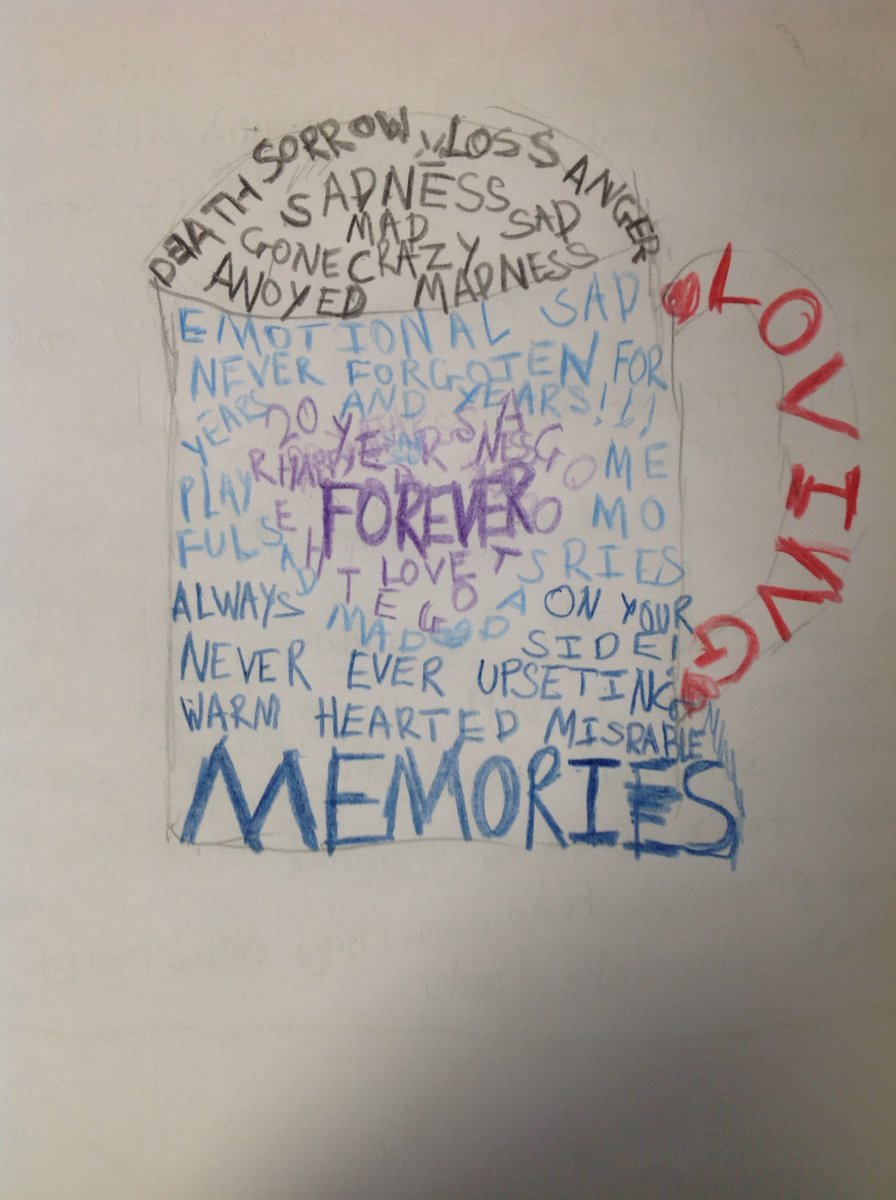 DEATH SORROW LOSS ANGER
SADNESS
MAD SAD
GONE CRAZY
ANOYED MADNESS
EMOTIONAL SAD
NEVER FORGOTEN FOR
YEARS AND YEARS!!!
20 YEARS
PLAYFUL
MEMORIES
FOREVER
LOVE
ALWAYS ON YOUR
SIDE!
MAD
NEVER EVER UPSETING
WARM HEARTED MISRABLE
MEMORIES
LOVING